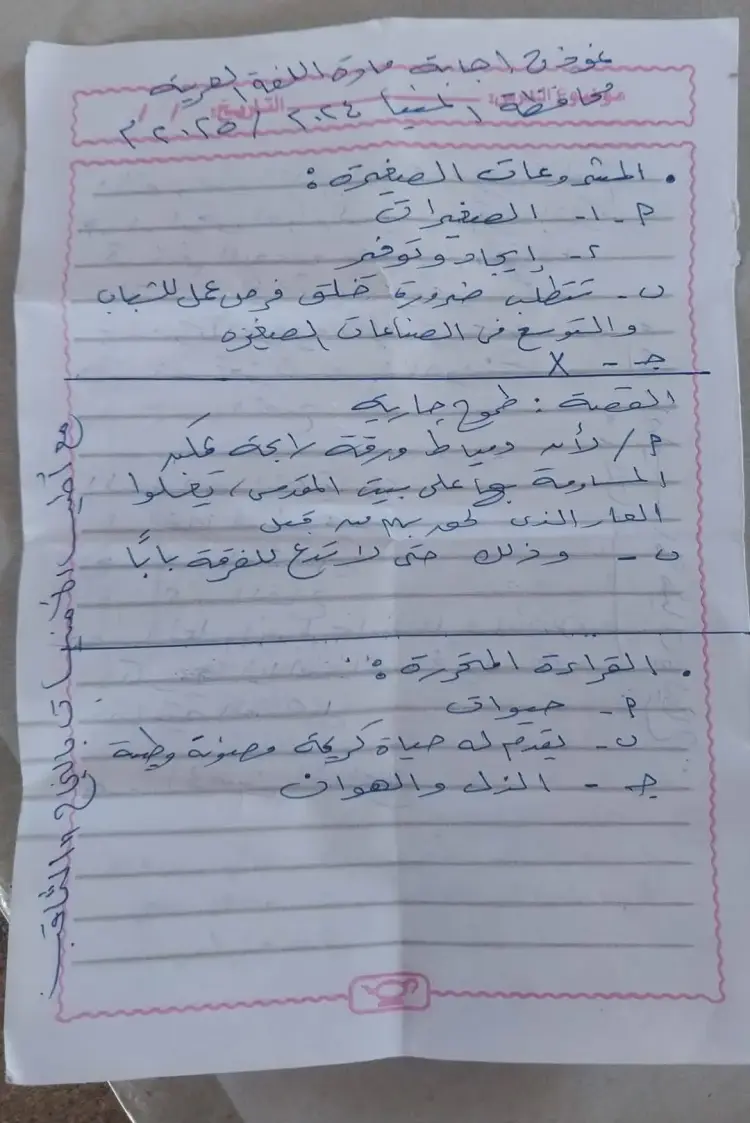 نموذج اجابة مادة اللغة العربية
محافظة المنيا ٢٠٢٤ / ٢٠٢٥ م
التاريخ: / /
. المشروعات الصغيرة :
م - ١- الصغيرات
٢- إيجاد وتوفير
ب - تتطلب ضرورة خلق فرص عمل للشباب
والتوسع فى الصناعات الصغيره
جـ - X
القصة : طموح جارية
م / لأن دمياط ورقة رابحة يمكن
المساومة بها على بيت المقدس ،
العار الذى لحق بهم من قبل
ب - وذلك حتى لا تدع للفرقة بابًا
. القراءة المتحررة :
م - حيوات
ب - يقدم له حياة كريمة مصونة
جـ - الذل والهوان
مع أطيب الأمنيات بالنجاح